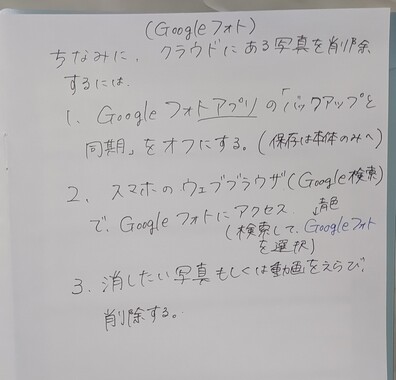 (Googleフォト)
ちなみに、クラウドにある写真を削除
するには、
1. Googleフォトアプリの「バックアップと
同期」をオフにする。(保存は本体のみへ)
2. スマホのウェブブラウザ(Google検索)
で、Googleフォトにアクセス
青色
(検索して、Googleフォト
を選択)
3. 消したい写真もしくは動画をえらび、
削除する。